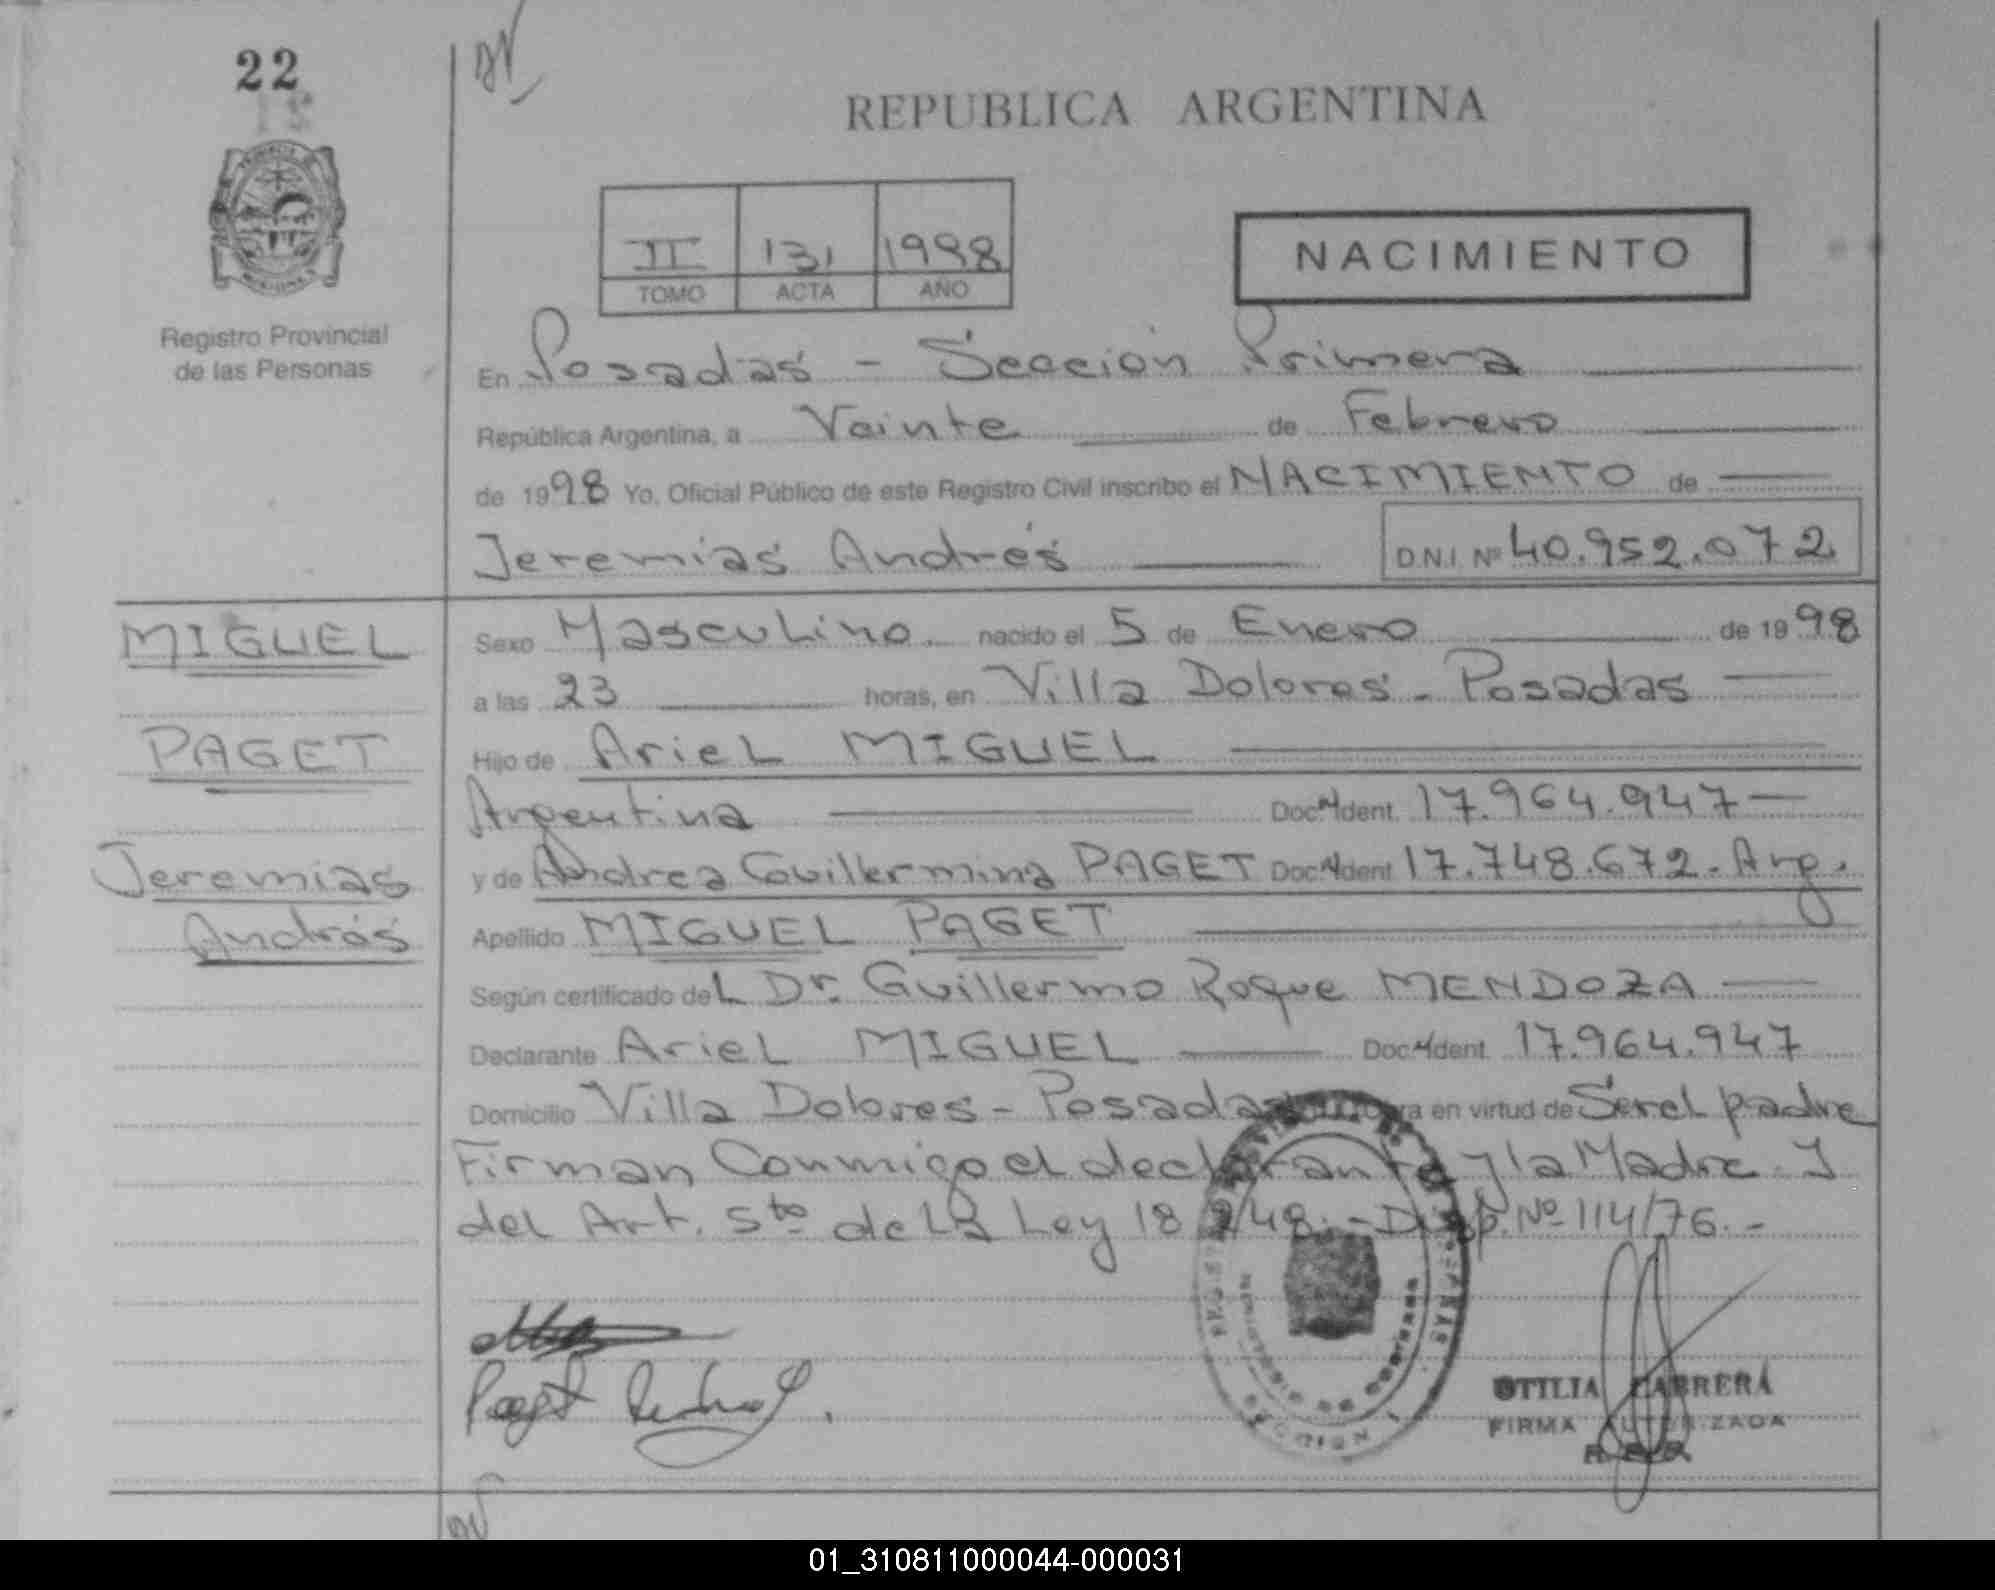 22
REPUBLICA ARGENTINA
Registro Provincial
de las Personas
II 131 1998
TOMO ACTA AÑO
NACIMIENTO
En Posadas - Sección Primera
República Argentina, a Veinte de Febrero
de 1998 Yo, Oficial Público de este Registro Civil inscribo el NACIMIENTO de
Jeremías Andrés D.N.I. Nº 40.952.072
MIGUEL
PAGET
Jeremias
Andrés
Sexo Masculino. nacido el 5 de Enero de 1998
a las 23 horas, en Villa Dolores - Posadas
Hijo de Ariel MIGUEL
Argentina Doc. Ident. 17.964.947
y de Andrea Guillermina PAGET Doc. Ident. 17.748.672. Arg.
Apellido MIGUEL PAGET
Según certificado del Dr. Guillermo Roque MENDOZA
Declarante Ariel MIGUEL Doc. Ident. 17.964.947
Domicilio Villa Dolores - Posadas en virtud de Ser el padre
Firman Conmigo el declarante y la Madre. J
del Art. 5to de la Ley 18.248. - Disp. Nº 114/76. -
Paget
OTILIA CABRERA
FIRMA AUTORIZADA
SECCION 1
01_310811000044-000031